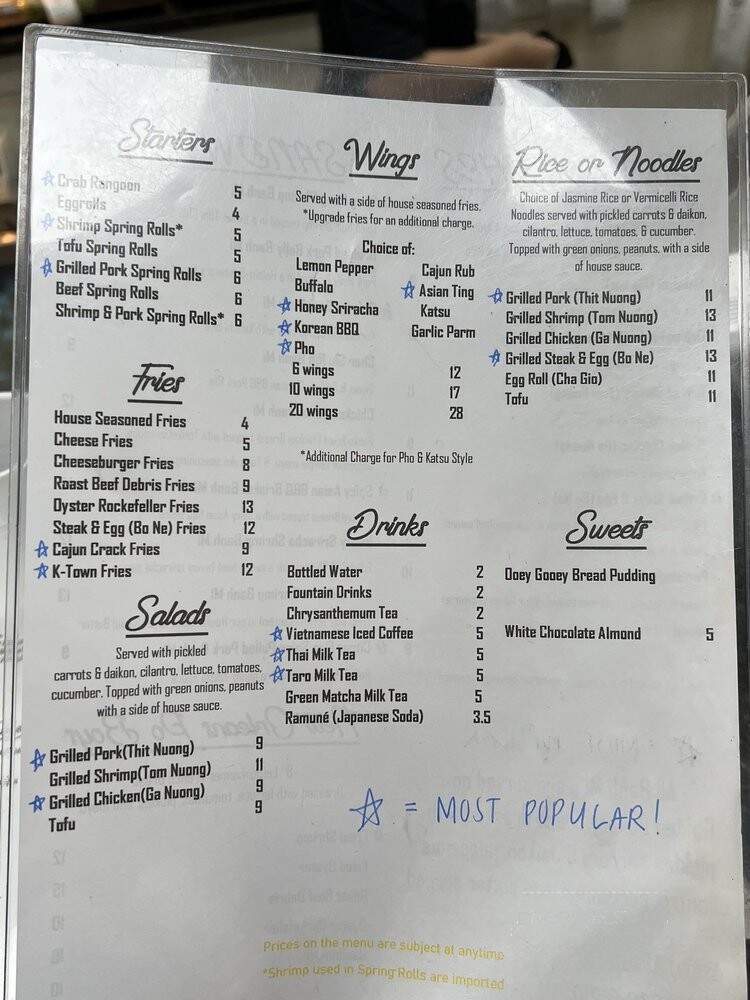 Starters
☆ Crab Rangoon 5
Eggrolls 4
☆ Shrimp Spring Rolls* 5
Tofu Spring Rolls 5
☆ Grilled Pork Spring Rolls 6
Beef Spring Rolls 6
Shrimp & Pork Spring Rolls* 6
Fries
House Seasoned Fries 4
Cheese Fries 5
Cheeseburger Fries 8
Roast Beef Debris Fries 9
Oyster Rockefeller Fries 13
Steak & Egg (Bo Ne) Fries 12
☆ Cajun Crack Fries 9
☆ K-Town Fries 12
Salads
Served with pickled
carrots & daikon, cilantro, lettuce, tomatoes,
cucumber. Topped with green onions, peanuts
with a side of house sauce.
☆ Grilled Pork(Thit Nuong) 9
Grilled Shrimp(Tom Nuong) 11
☆ Grilled Chicken(Ga Nuong) 9
Tofu 9
Wings
Served with a side of house seasoned fries.
*Upgrade fries for an additional charge.
Choice of:
Lemon Pepper
Buffalo
☆ Honey Sriracha
☆ Korean BBQ
☆ Pho
Cajun Rub
☆ Asian Ting
Katsu
Garlic Parm
6 wings 12
10 wings 17
20 wings 28
*Additional Charge for Pho & Katsu Style
Drinks
Bottled Water 2
Fountain Drinks 2
Chrysanthemum Tea 2
☆ Vietnamese Iced Coffee 5
☆ Thai Milk Tea 5
☆ Taro Milk Tea 5
Green Matcha Milk Tea 5
Ramuné (Japanese Soda) 3.5
Rice or Noodles
Choice of Jasmine Rice or Vermicelli Rice
Noodles served with pickled carrots & daikon,
cilantro, lettuce, tomatoes, & cucumber.
Topped with green onions, peanuts, with a side
of house sauce.
☆ Grilled Pork (Thit Nuong) 11
Grilled Shrimp (Tom Nuong) 13
Grilled Chicken (Ga Nuong) 11
☆ Grilled Steak & Egg (Bo Ne) 13
Egg Roll (Cha Gio) 11
Tofu 11
Sweets
Ooey Gooey Bread Pudding
White Chocolate Almond 5
☆ = MOST POPULAR!
Prices on the menu are subject at anytime
*Shrimp used in Spring Rolls are imported